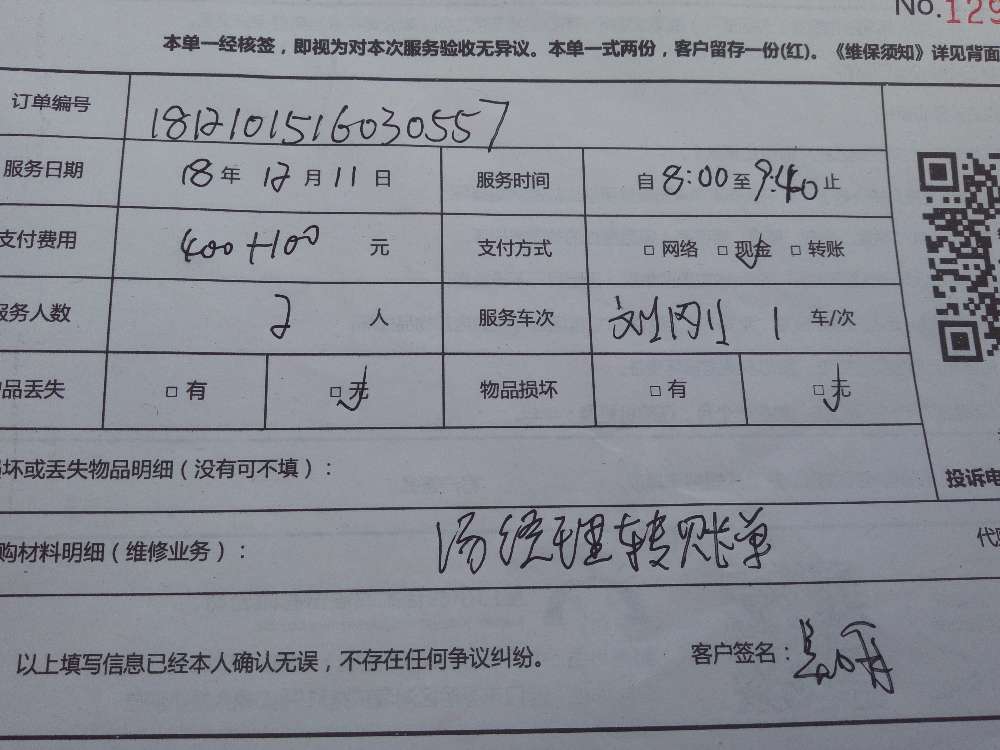 No.129
本单一经核签，即视为对本次服务验收无异议。本单一式两份，客户留存一份(红)。《维保须知》详见背面
订单编号 1812101516030557
服务日期 18年12月11日 服务时间 自8:00至9:40止
支付费用 400+100 元 支付方式 □网络 □现金 □转账
服务人数 2 人 服务车次 刘刚 1 车/次
品丢失 □有 □无 物品损坏 □有 □无
坏或丢失物品明细（没有可不填）： 投诉电
购材料明细（维修业务）： 汤经理转账单 代
以上填写信息已经本人确认无误，不存在任何争议纠纷。 客户签名：